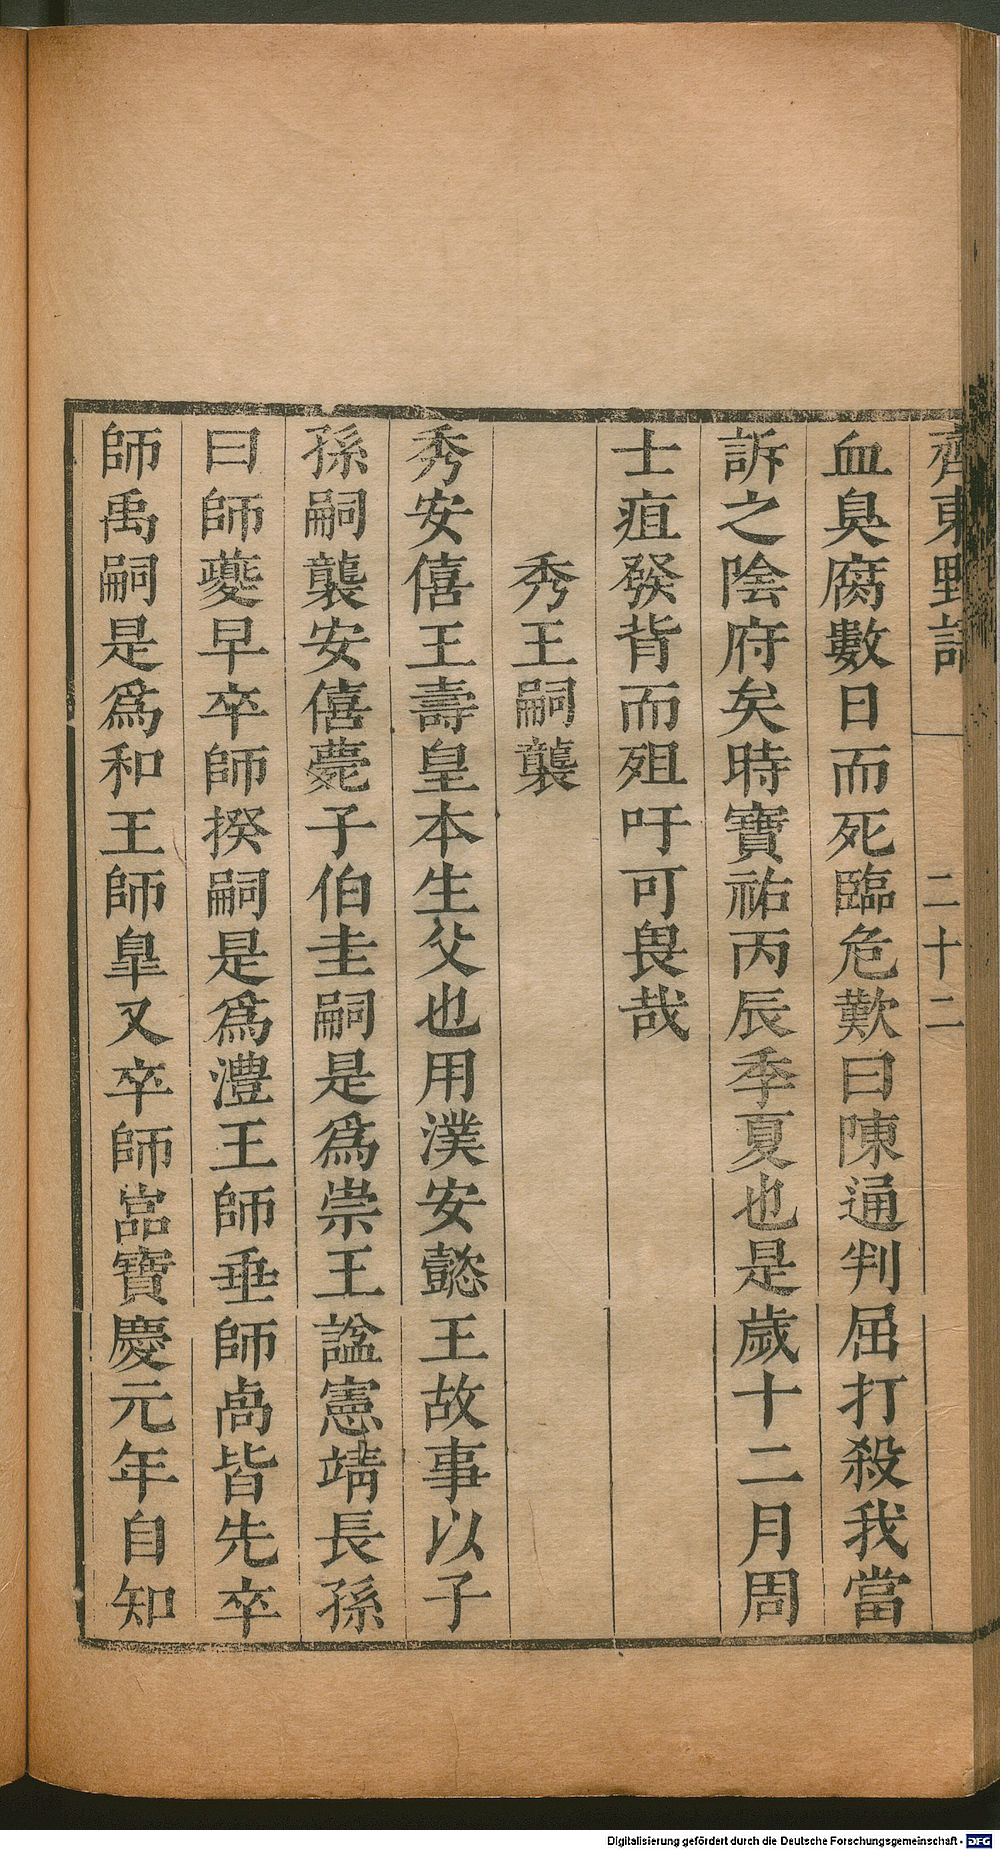 齊東野語 二十二
血臭腐數日而死臨危歎曰陳通判屈打殺我當
訴之陰府矣時寶祐丙辰季夏也是歲十二月周
士疽發背而殂吁可畏哉
秀王嗣襲
秀安僖王壽皇本生父也用濮安懿王故事以子
孫嗣襲安僖薨子伯圭嗣是爲崇王諡憲靖長孫
曰師夔早卒師揆嗣是爲澧王師垂師卨皆先卒
師禹嗣是爲和王師皐又卒師嵓寶慶元年自知
Digitalisierung gefördert durch die Deutsche Forschungsgemeinschaft - DFG